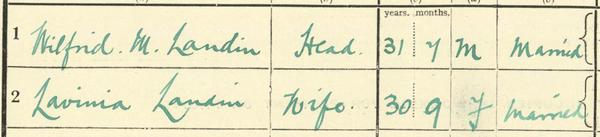 years. months.
1 Wilfrid. M. Landin Head. 31 7 M Married
2 Lavinia Landin Wife. 30 9 F Married